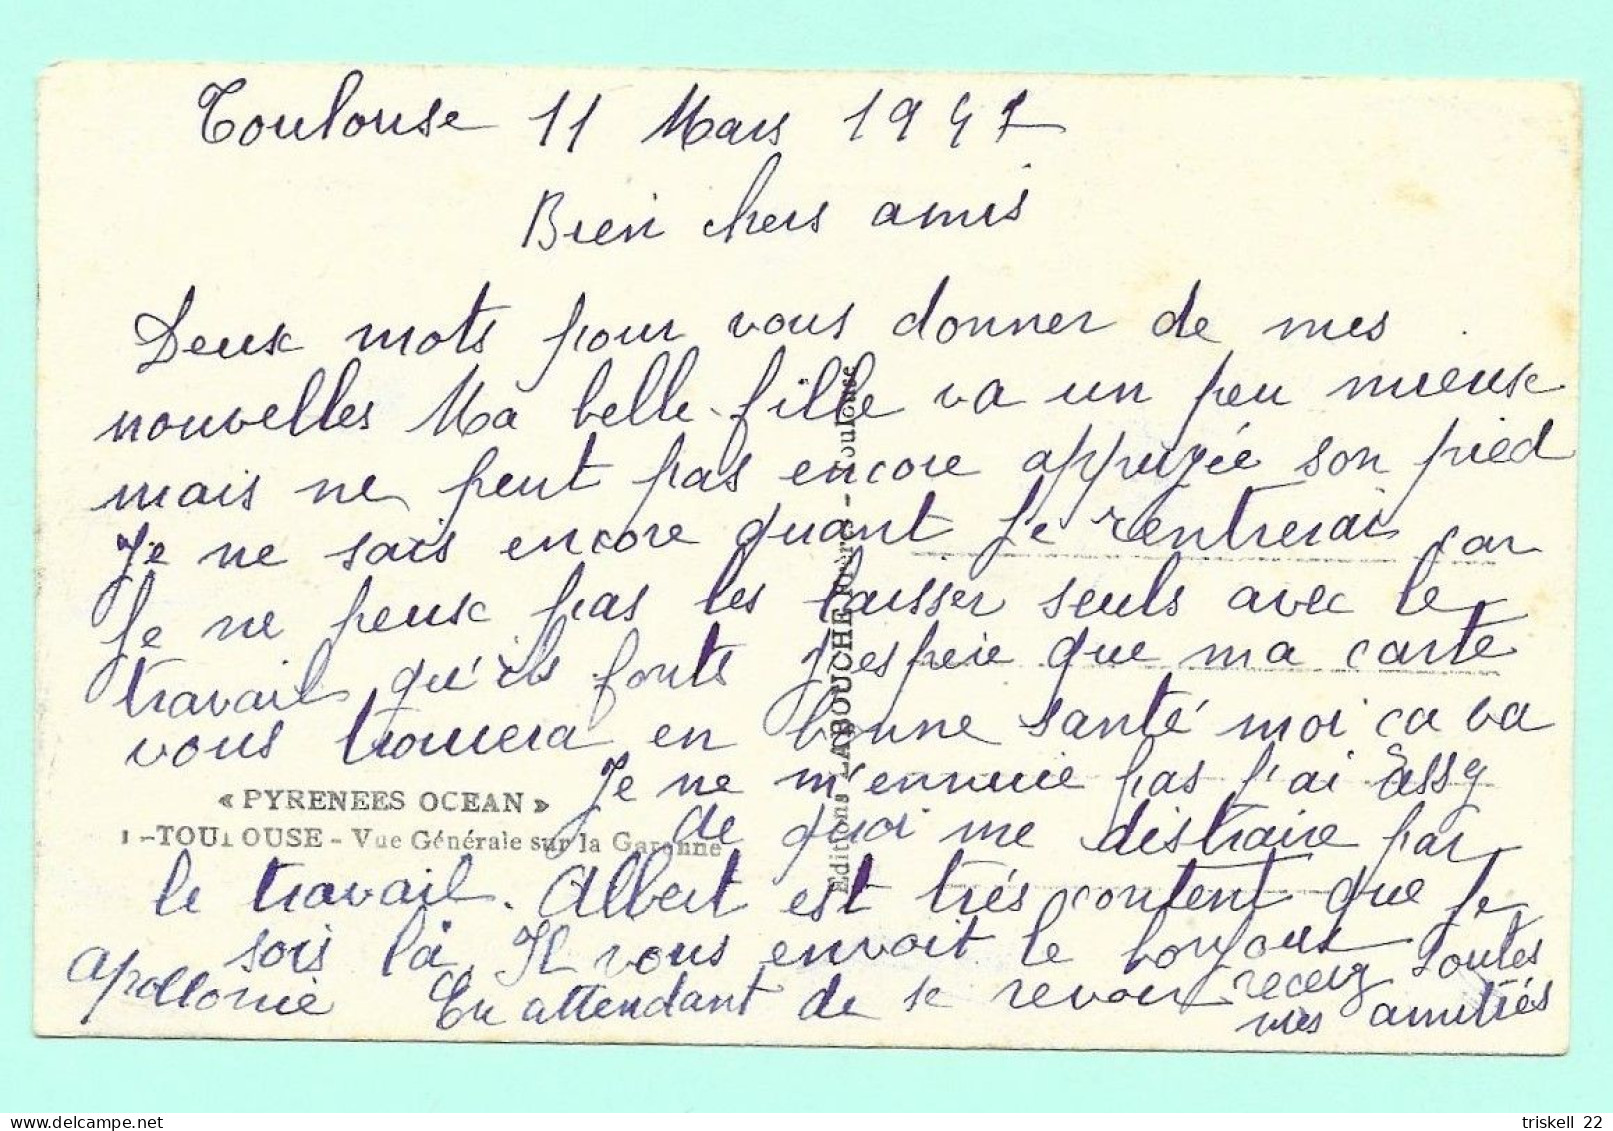 Toulouse 11 Mars 1947
Bien chers amis
Deux mots pour vous donner de mes
nouvelles Ma belle-fille va un peu mieux
mais ne peut pas encore appuyée son pied
Je ne sais encore quant je rentrerai car
je ne peux pas les laisser seuls avec le
travail qu'ils fonts j'espère que ma carte
vous trouvera en bonne santé moi ca va
Je ne m'ennuie pas j'ai assez
de quoi me distraire par
le travail. Albert est très content que je
sois là Il vous envoit le bonjour
En attendant de se revoir recevez toutes
mes amitiés
Apollonie
« PYRENEES OCEAN »
1 - TOULOUSE - Vue Générale sur la Garonne
Editions LABOUCHE Frères - Toulouse
triskell_22